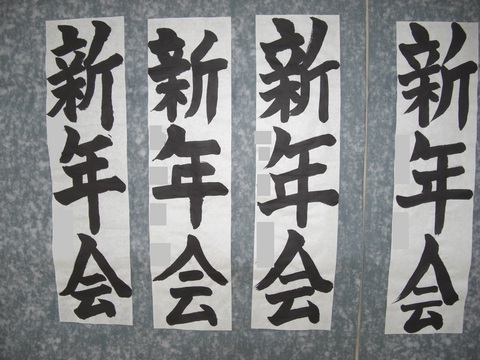 新年会
新年会
新年会
新年会